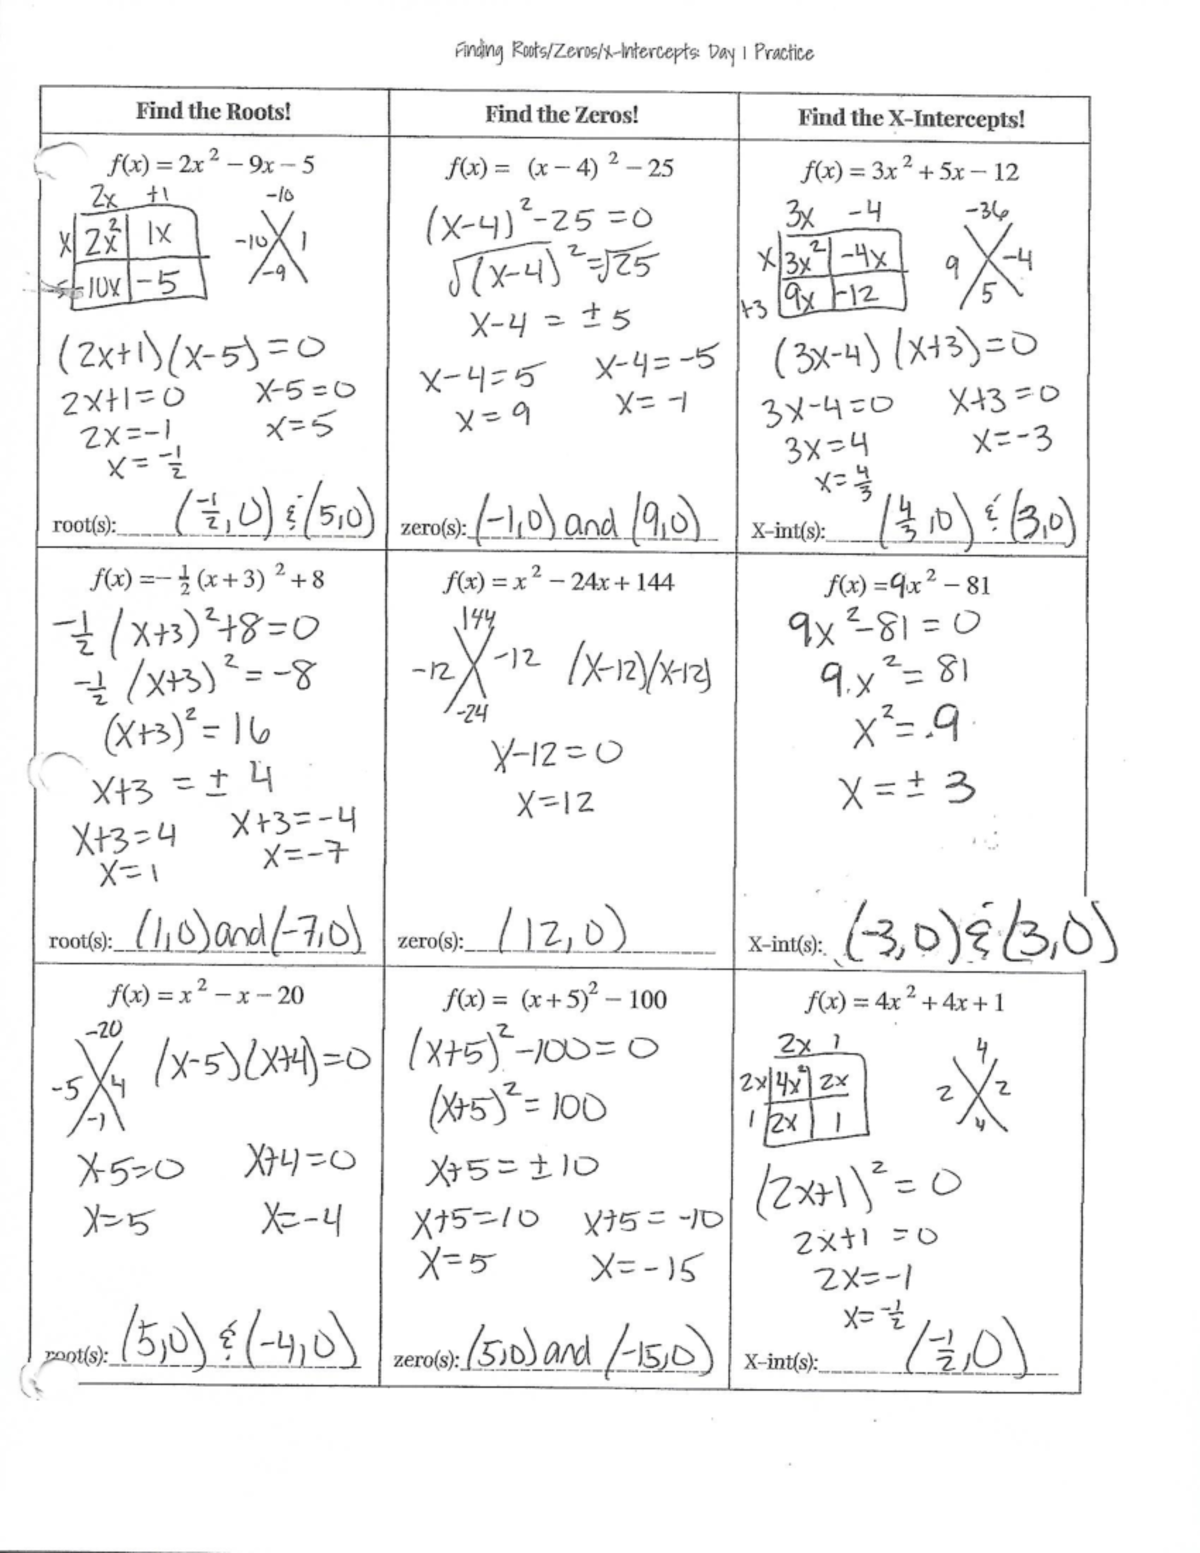 Finding Roots/Zeros/X-Intercepts: Day 1 Practice
Find the Roots!
f(x) = 2x² – 9x – 5
2x +1
x 2x² 1x
-5 -10x -5
-10
-10 1
-9
(2x+1)(x-5)=0
2x+1=0 x-5=0
2x=-1 x=5
x=-1/2
root(s): (-1/2,0) & (5,0)
Find the Zeros!
f(x) = (x – 4)² – 25
(x-4)²-25=0
√(x-4)²=√25
x-4 = ±5
x-4=5 x-4=-5
x=9 x=-1
zero(s): (-1,0) and (9,0)
Find the X-Intercepts!
f(x) = 3x² + 5x – 12
3x -4
x 3x² -4x
+3 9x -12
-36
9 -4
5
(3x-4)(x+3)=0
3x-4=0 x+3=0
3x=4 x=-3
x=4/3
X-int(s): (4/3,0) & (3,0)
f(x) =– 1/2 (x+3)² +8
-1/2(x+3)²+8=0
-1/2(x+3)²=-8
(x+3)²=16
x+3 = ± 4
x+3=4 x+3=-4
x=1 x=-7
root(s): (1,0) and (-7,0)
f(x) = x² – 24x + 144
144
-12 -12 (x-12)(x-12)
-24
x-12=0
x=12
zero(s): (12,0)
f(x) =9x² – 81
9x²-81=0
9.x²=81
x²=.9
x=± 3
X-int(s): (-3,0) & (3,0)
f(x) = x² – x – 20
-20
-5 4 (x-5)(x+4)=0
-1
x-5=0 x+4=0
x=5 x=-4
root(s): (5,0) & (-4,0)
f(x) = (x+5)² – 100
(x+5)²-100=0
(x+5)²=100
x+5=±10
x+5=10 x+5=-10
x=5 x=-15
zero(s): (5,0) and (-15,0)
f(x) = 4x² + 4x + 1
2x 1
2x 4x² 2x
1 2x 1
4
2 2
4
(2x+1)²=0
2x+1=0
2x=-1
x=-1/2
X-int(s): (-1/2,0)